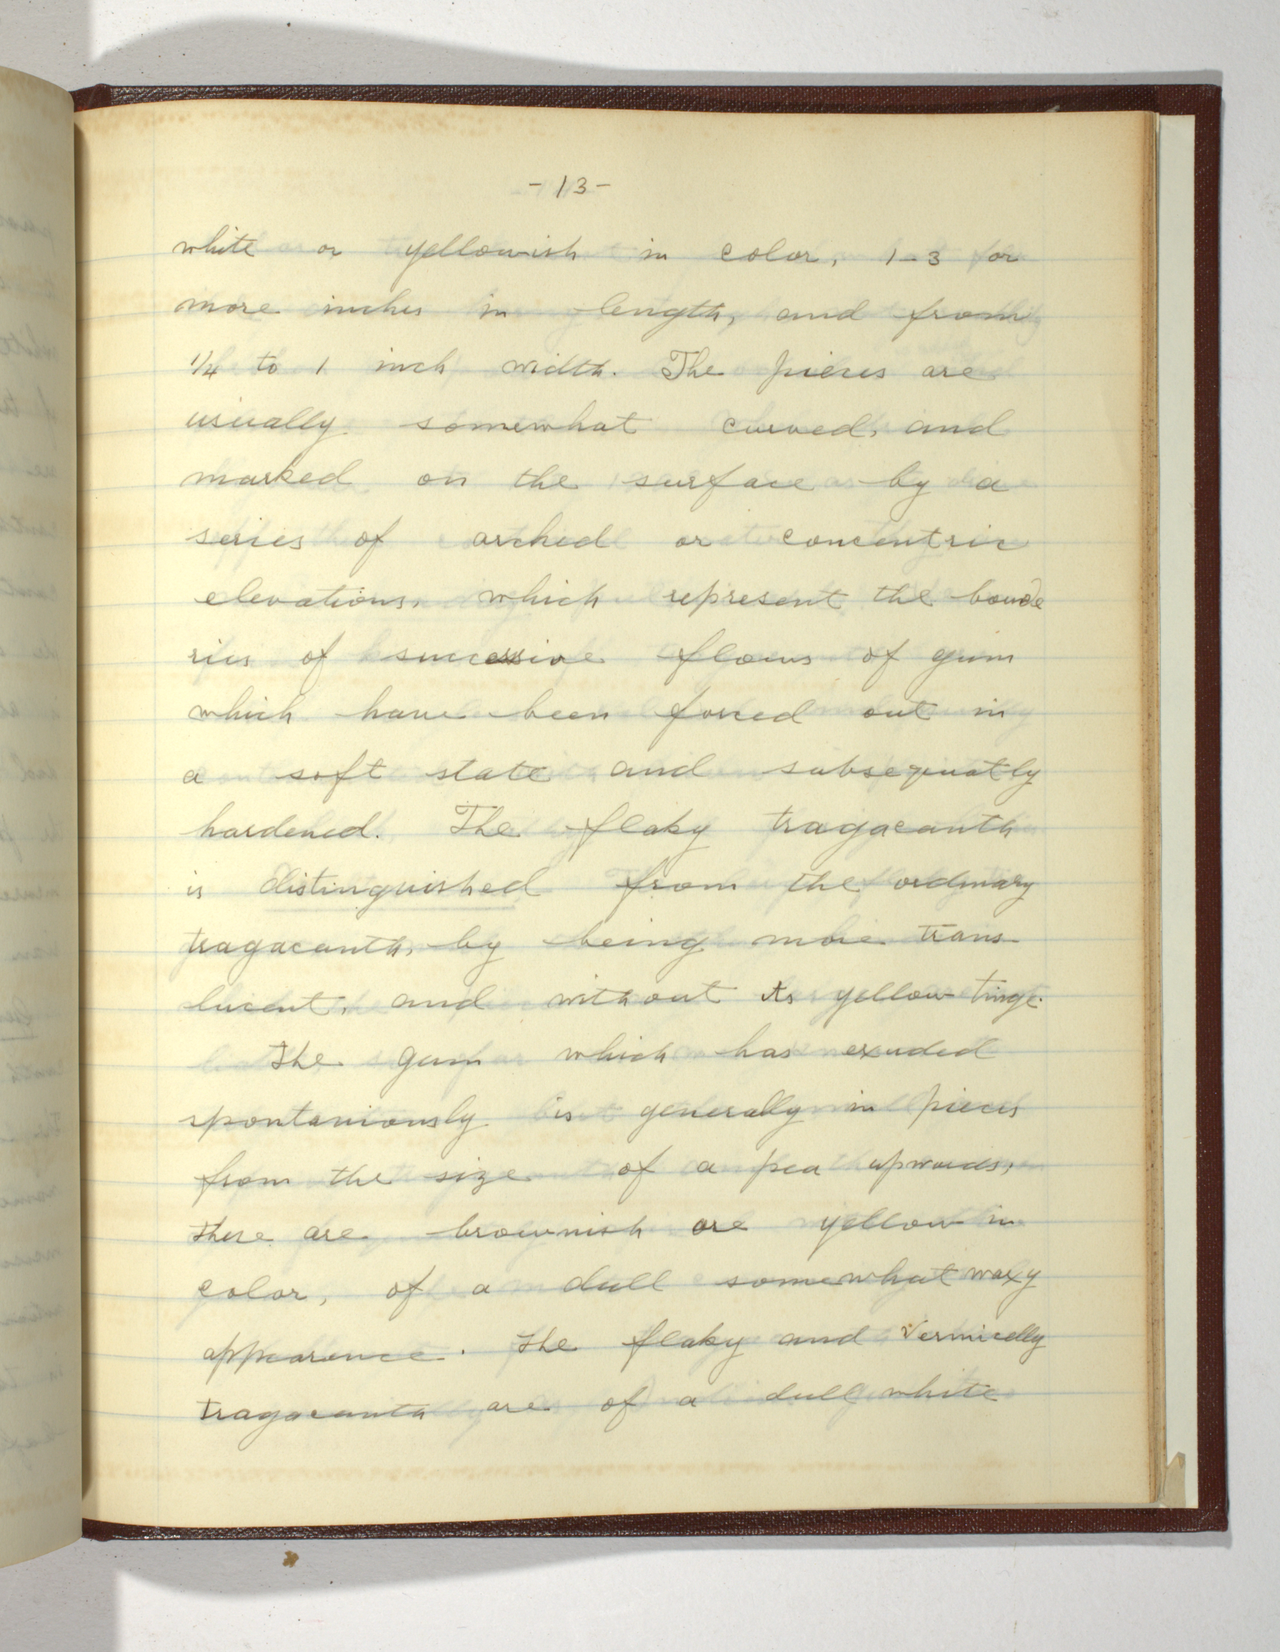 -13-
white or yellowish in color, 1-3 or
more inches in length, and from
1/4 to 1 inch width. The pieces are
usually somewhat curved, and
marked on the surface by a
series of arched or concentric
elevations, which represent the bounde
ries of successive flows of gum
which have been forced out in
a soft state and subsequatly
hardened. The flaky tragacanth
is distinguished from the ordinary
tragacanth, by being more trans-
lucent, and without its yellow tinge.
The gum which has exuded
spontaniously is generally in pieces
from the size of a pea upwards,
there are brownish ore yellow in
color, of a dull somewhat waxy
appearance. The flaky and vermicelly
tragacanth are of a dull white